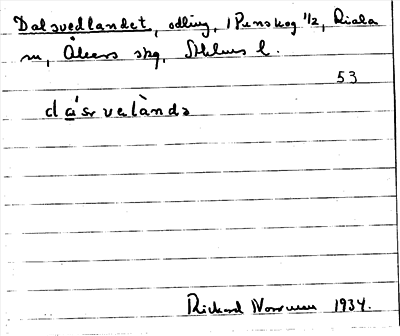 Dalsvedlandet, odling, 1 Penskog 1/2, Riala
sn, Åkers skg, Sthlms l.
53
dá̱sṛvelànda
Rickard Norrman 1934.